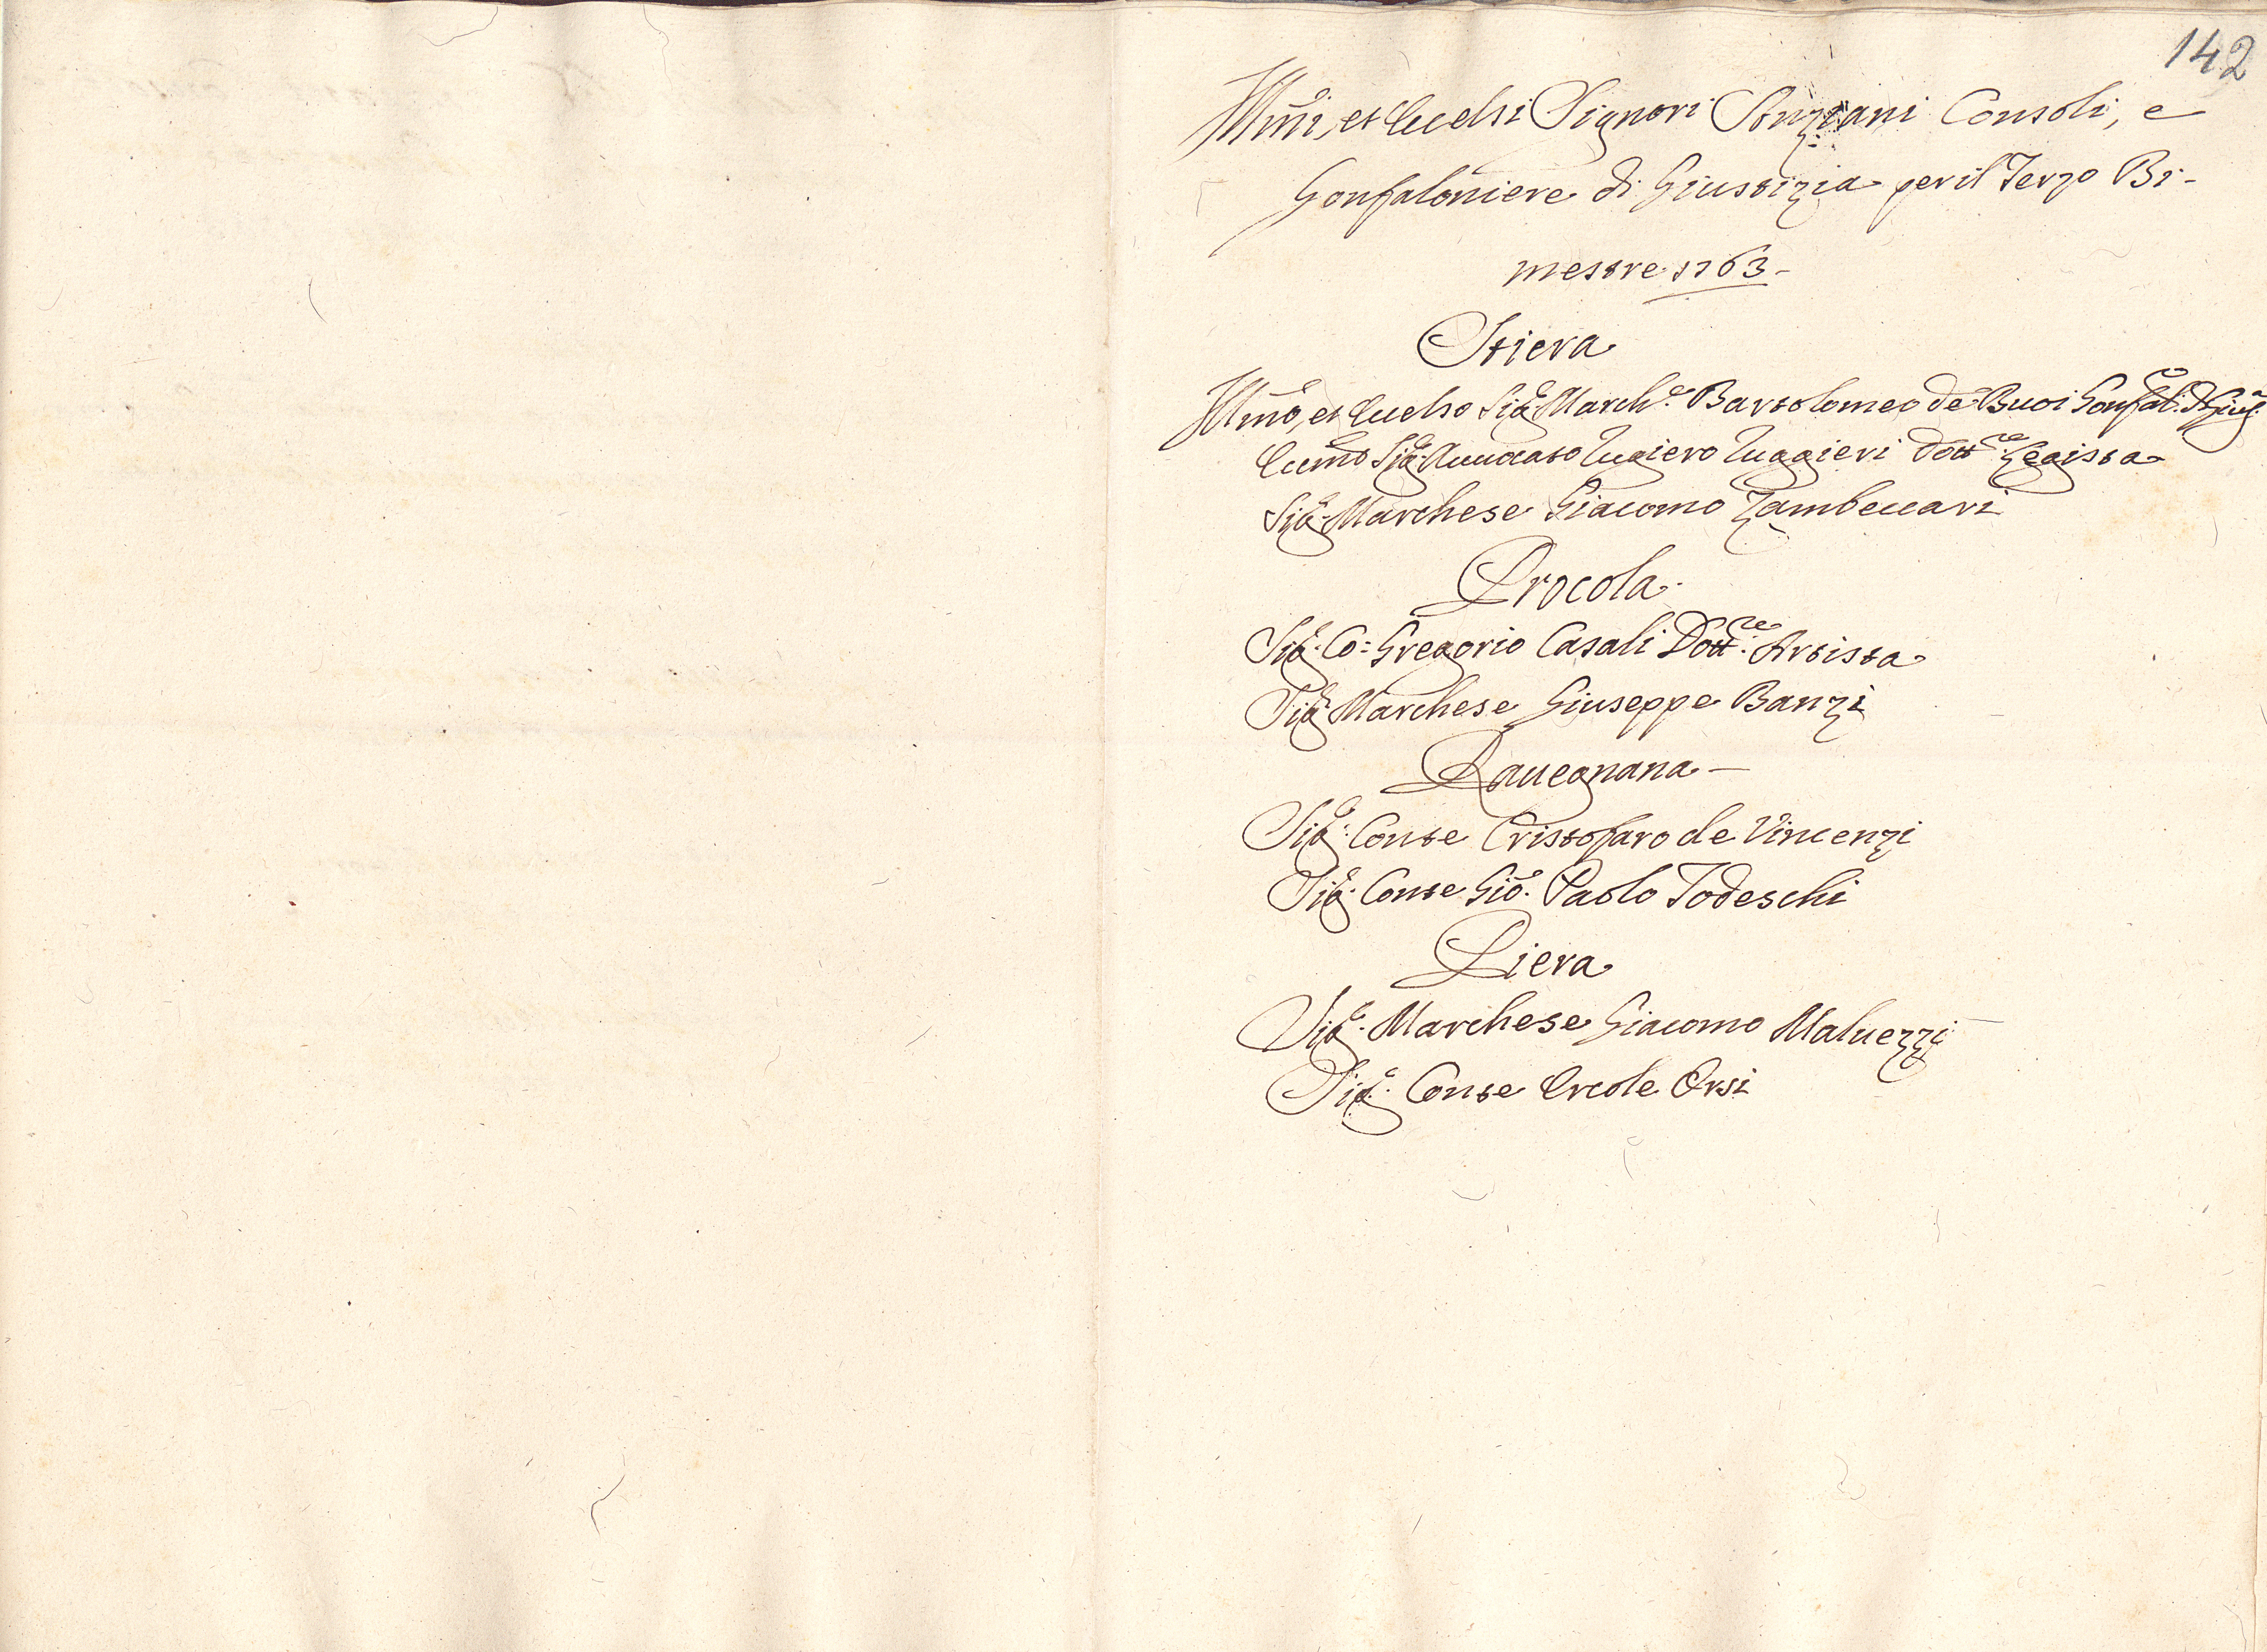 142
Illmi, et Eccelsi Signori Anziani Consoli, e
Gonfaloniere di Giustizia per il Terzo Bi-
mestre 1763-
Stiera
Illmo, et Eccelso Sigr. Marche. Bartolomeo de Buoi Gonfalo. di Giusa.
Eccmo Sigr. Auuocato Rugiero Ruggieri Dottre. Legista
Sigr. Marchese Giacomo Zambeccari
Procola
Sigr. Co: Gregorio Casali Dottre. Artista
Sigr. Marchese Giuseppe Banzi
Rauegnana
Sigr. Conte Cristofaro de Vincenzi
Sigr. Conte Gio. Paolo Todeschi
Piera
Sigr. Marchese Giacomo Maluezzi
Sigr. Conte Ercole Orsi